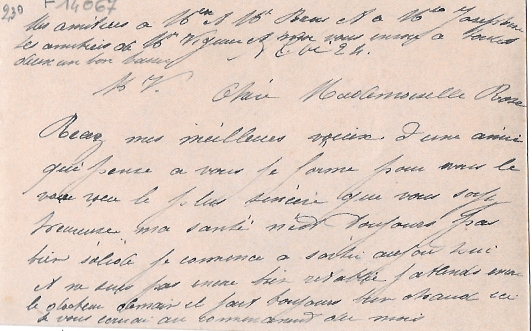 239 F 14067
Mes amitiées a Mme & Mr Brun & a Mlle Joséphine
les amitiés de Mr Viguier & vous envoye a toutes
deux un bon baiser
M V.
Chère Mademoiselle Rose
Recez mes meilleurs voeux d'une amie
qui pense a vous je forme pour vous le
voeu le plus sincère que vous soyz
heureuse ma santé n'est toujours pas
bien solide je commence a sortir aujourd'hui
& ne suis pas encore bien retablie j'attends encore
le docteur demain il fait toujours bien chaud ici
a vous comme au commencement du mois